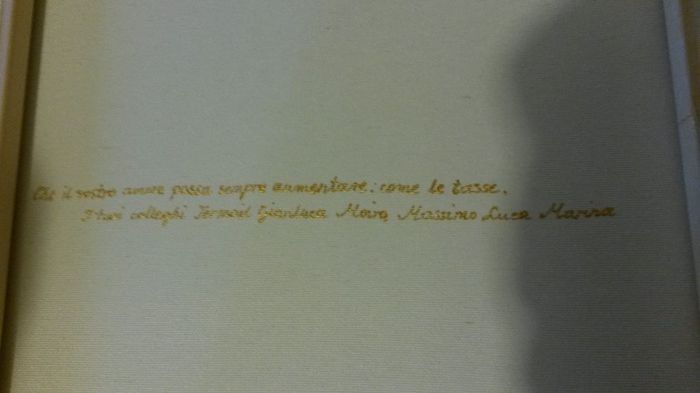 Che il vostro amore possa sempre aumentare: come le tasse.
I tuoi colleghi Gianluca Moira Massimo Luca Marina